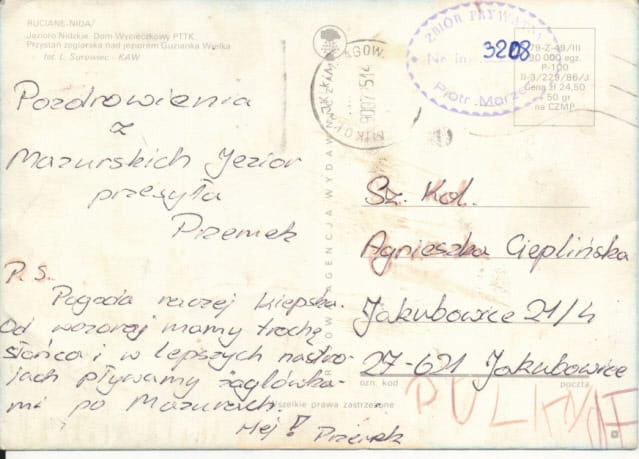 RUCIANE-NIDA/
Jezioro Nidzkie. Dom Wycieczkowy PTTK
Przystań żeglarska nad jeziorem Guzianka Wielka
fot. L. Surowiec - KAW
Pozdrowienia
z
Mazurskich Jezior
przesyła
Przemek
P.S.
Pogoda raczej kiepska.
Od wczoraj mamy trochę
słońca i w lepszych nastro-
jach pływamy żaglówka-
mi po Mazurach.
Hej! Przemek
AGENCJA WYDAWNICZA
Wszelkie prawa zastrzeżone
MIKOŁAJKI
ZBIÓR PRYWATNY
Nr 3208
Piotr Marze
79-Z-49/III
30 000 egz.
P-100
II-3/229/86/J
Cena zł 24,50
+ 50 gr
na CZMP
Sz. Kol.
Agnieszka Cieplińska
Jakubowice 21/4
27-621 Jakubowice
ozn. kod poczta